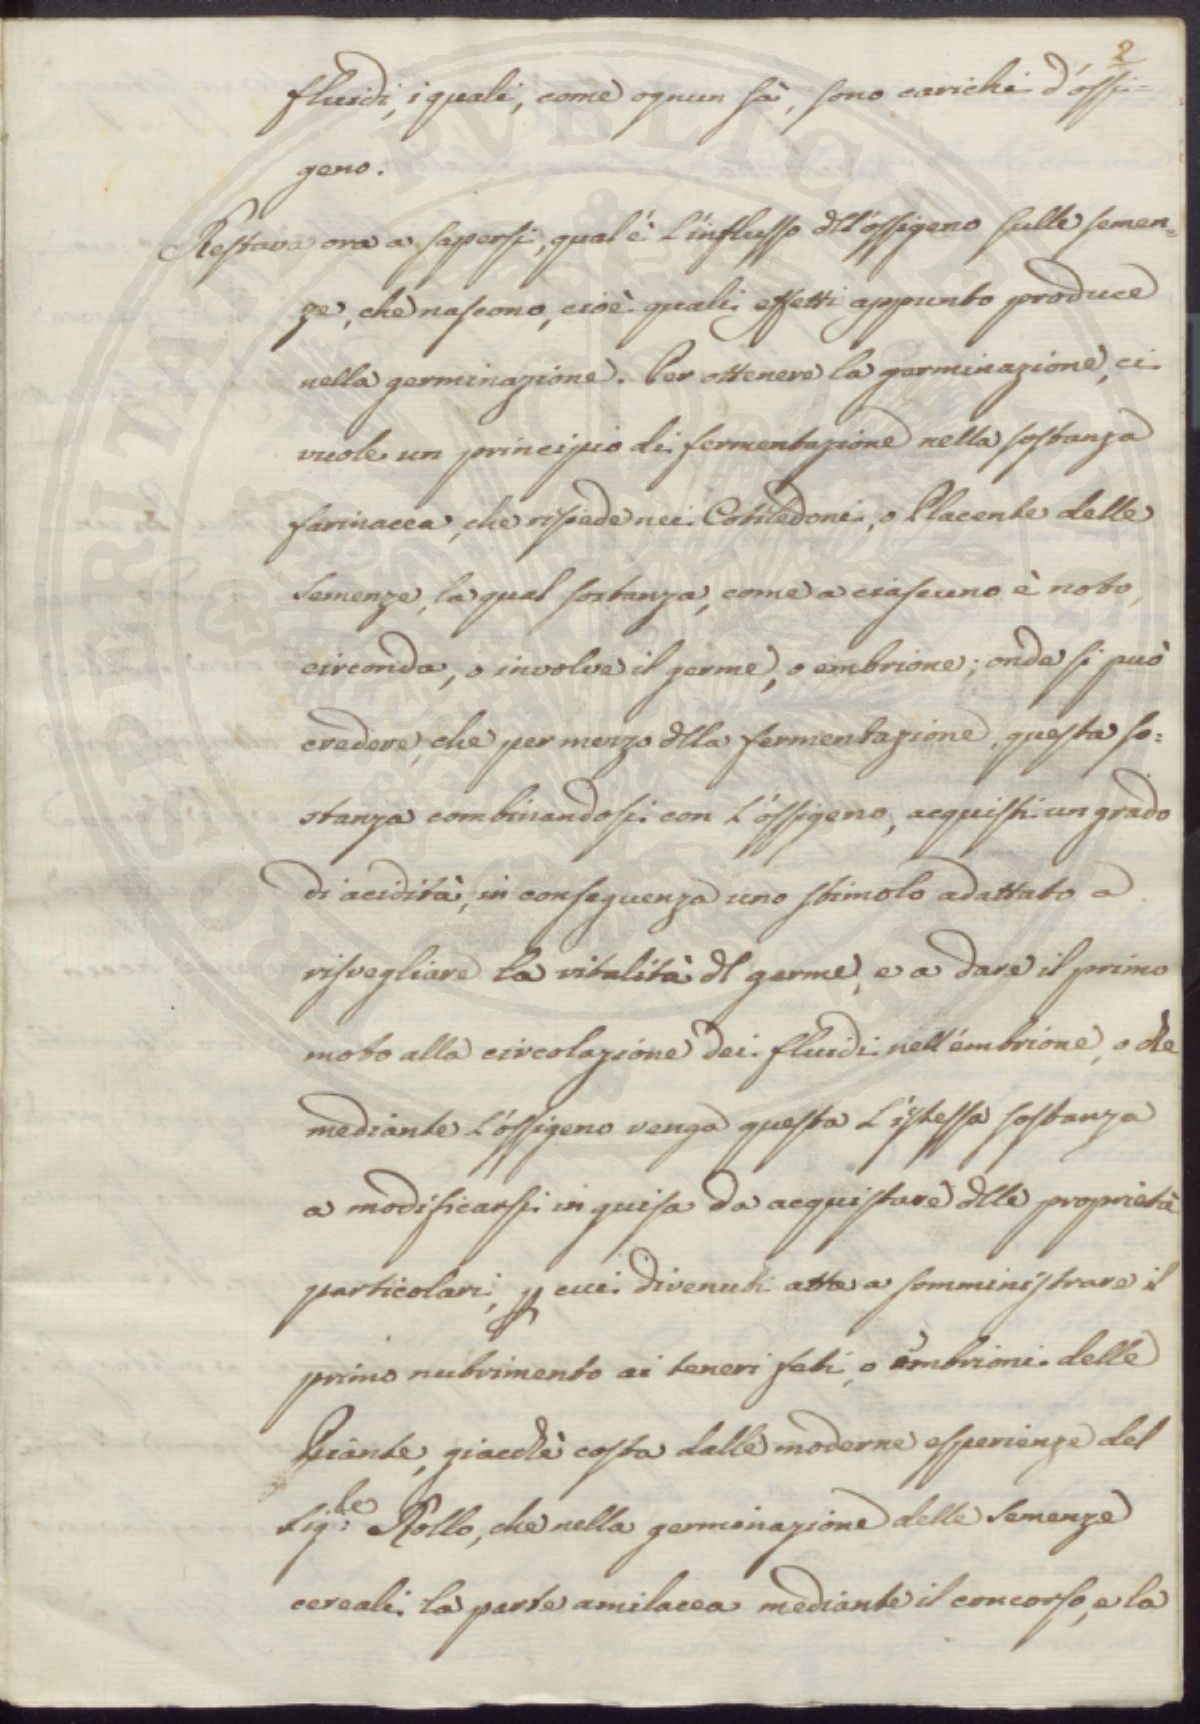 2
fluidi, i quali, come ognun sà, sono carichi d'ossi=
geno.
Restava ora a sapersi, qual'è l'influsso dll'ossigeno sulle semen=
ze, che nascono, cioè quali effetti appunto produce
nella germinazione. Per ottenere la germinazione, ci
vuole un principio di fermentazione nella sostanza
farinacea, che risiede nei Cotiledoni, o Placente delle
Semenze, la qual sostanza, come a ciascuno è noto,
circonda, o involve il germe, o embrione; onde si può
credere, che per mezzo dlla fermentazione questa so=
stanza combinandosi con l'ossigeno, acquisti un grado
di acidità, in conseguenza uno stimolo adattato a
risvegliare la vitalità dl germe, e a dare il primo
moto alla circolazione dei fluidi nell'embrione, o che
mediante l'ossigeno venga questa l'istessa sostanza
a modificarsi in guisa da acquistare dlle proprietà
particolari, p cui divenuti atta a somministrare il
primo nutrimento ai teneri feti, o embrioni delle
Piante, giacchè costa dalle moderne esperienze del
Sig.le Rollo, che nella germinazione delle Semenze
cereali la parte amilacea mediante il concorso, e la
PROSPERITATI PVBLICAE